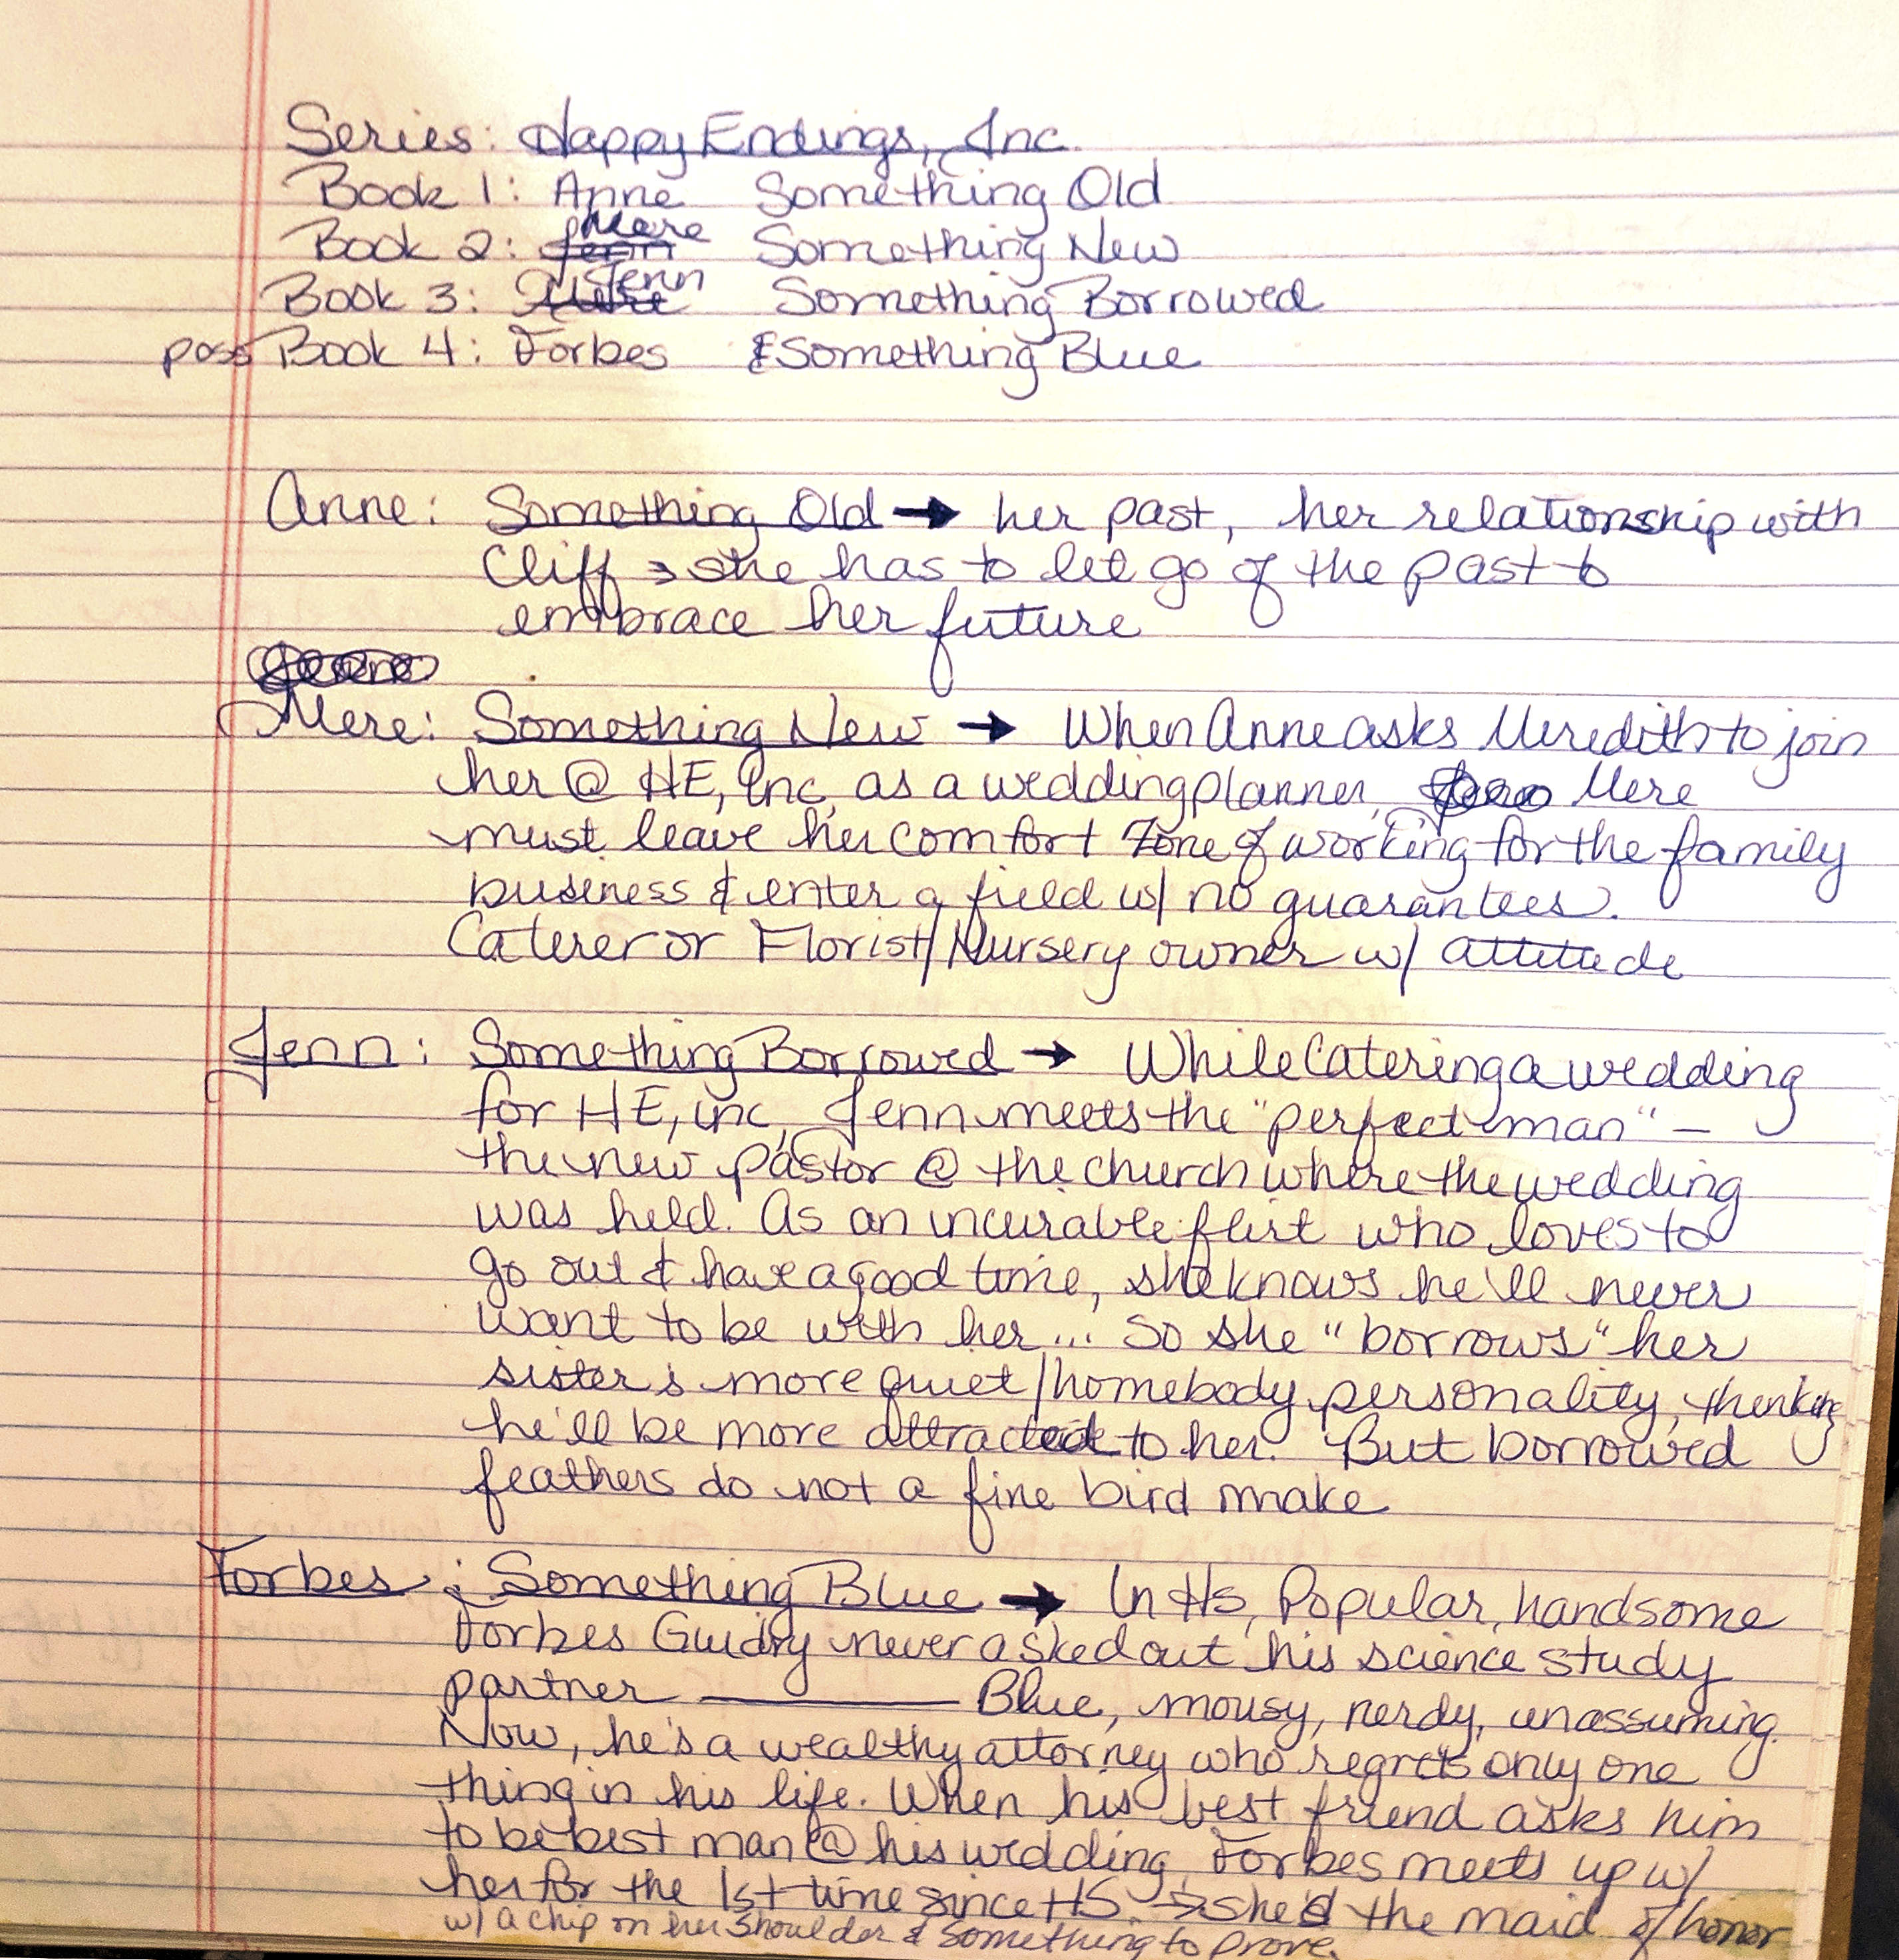 Series: Happy Endings, Inc.
Book 1: Anne Something Old
Book 2: Jenn Mere Something New
Book 3: Mere Jenn Something Borrowed
poss Book 4: Forbes Something Blue
Anne: Something Old → her past, her relationship with
Cliff → she has to let go of the past to
embrace her future
Mere: Something New → When Anne asks Meredith to join
her @ HE, Inc, as a wedding planner, Mere
must leave her comfort zone of working for the family
business & enter a field w/ no guarantees.
Caterer or Florist/Nursery owner w/ attitude
Jenn: Something Borrowed → While catering a wedding
for HE, inc, Jenn meets the "perfect man" –
the new pastor @ the church where the wedding
was held. As an incurable flirt who loves to
go out & have a good time, she knows he'll never
want to be with her... so she "borrows" her
sister's more quiet/homebody personality, thinking
he'll be more attracted to her. But borrowed
feathers do not a fine bird make
Forbes: Something Blue → In HS, Popular, handsome
Forbes Guidry never asked out his science study
partner ______ Blue, mousy, nerdy, unassuming.
Now, he's a wealthy attorney who regrets only one
thing in his life. When his best friend asks him
to be best man @ his wedding, Forbes meets up w/
her for the 1st time since HS → she's the maid of honor
w/ a chip on her shoulder & something to prove.